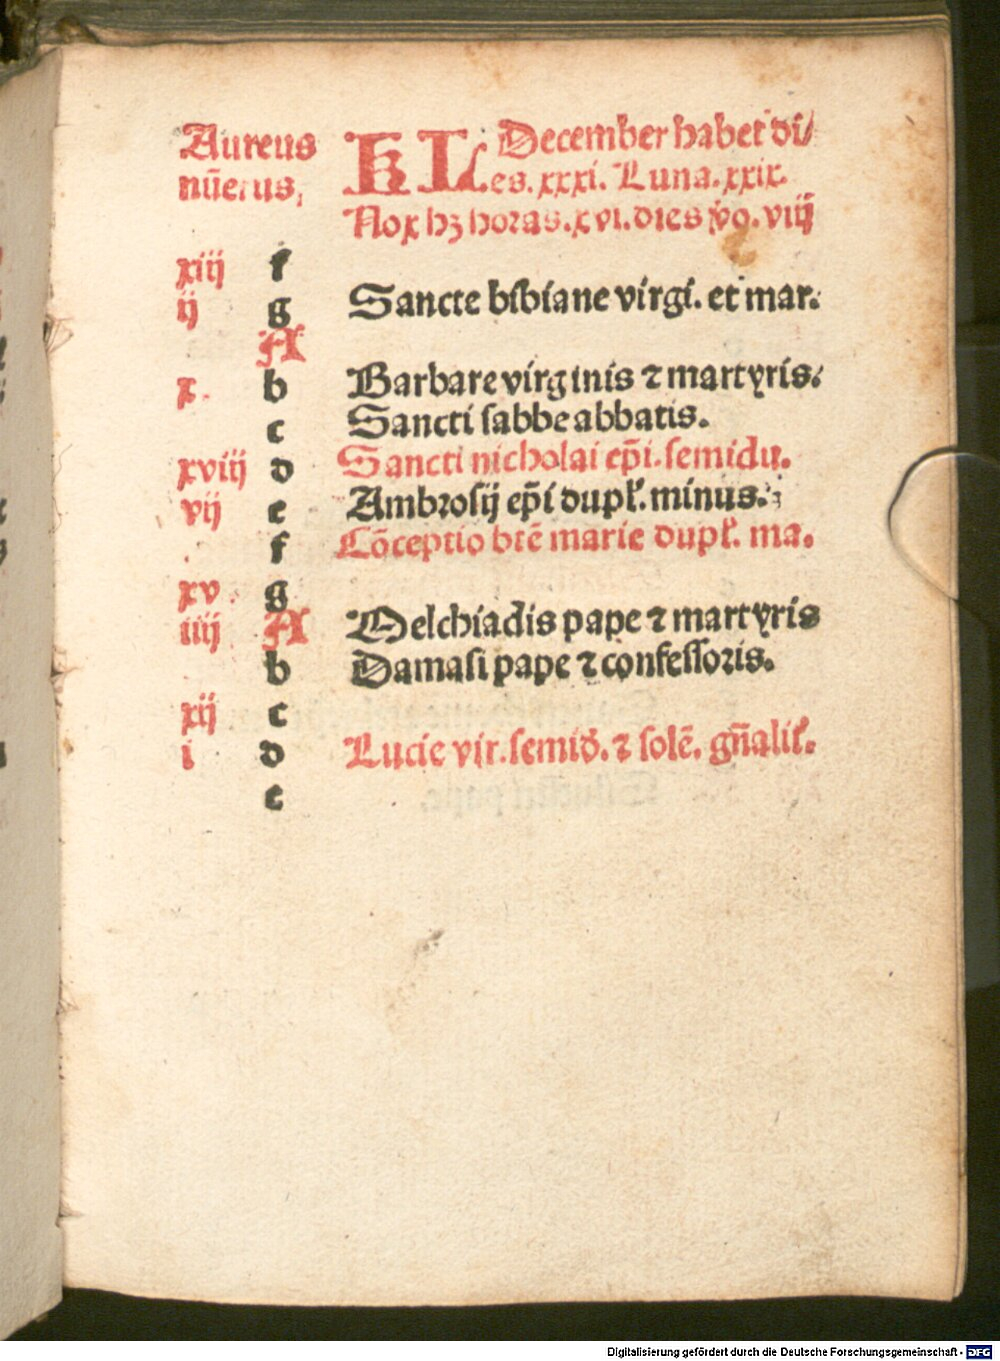 Aureus
nūerus,
KL December habet di/
es. xxxi. Luna. xxix.
Nox hꝫ horas. xvi. dies v̾o. viij
xiij f
ij g Sancte bibiane virgi. et mar.
A
x. b Barbare virginis ⁊ martyris.
c Sancti sabbe abbatis.
xviij d Sancti nicholai ep̄i. semidu.
vij e Ambrosij ep̄i dupl̕. minus.
f Cōceptio btē marie dupl̕. ma.
xv g
iiij A Melchiadis pape ⁊ martyris
b Damasi pape ⁊ confessoris.
xij c
i d Lucie vir. semid̕. ⁊ solē. gn̄alit̕.
e
Digitalisierung gefördert durch die Deutsche Forschungsgemeinschaft - DFG